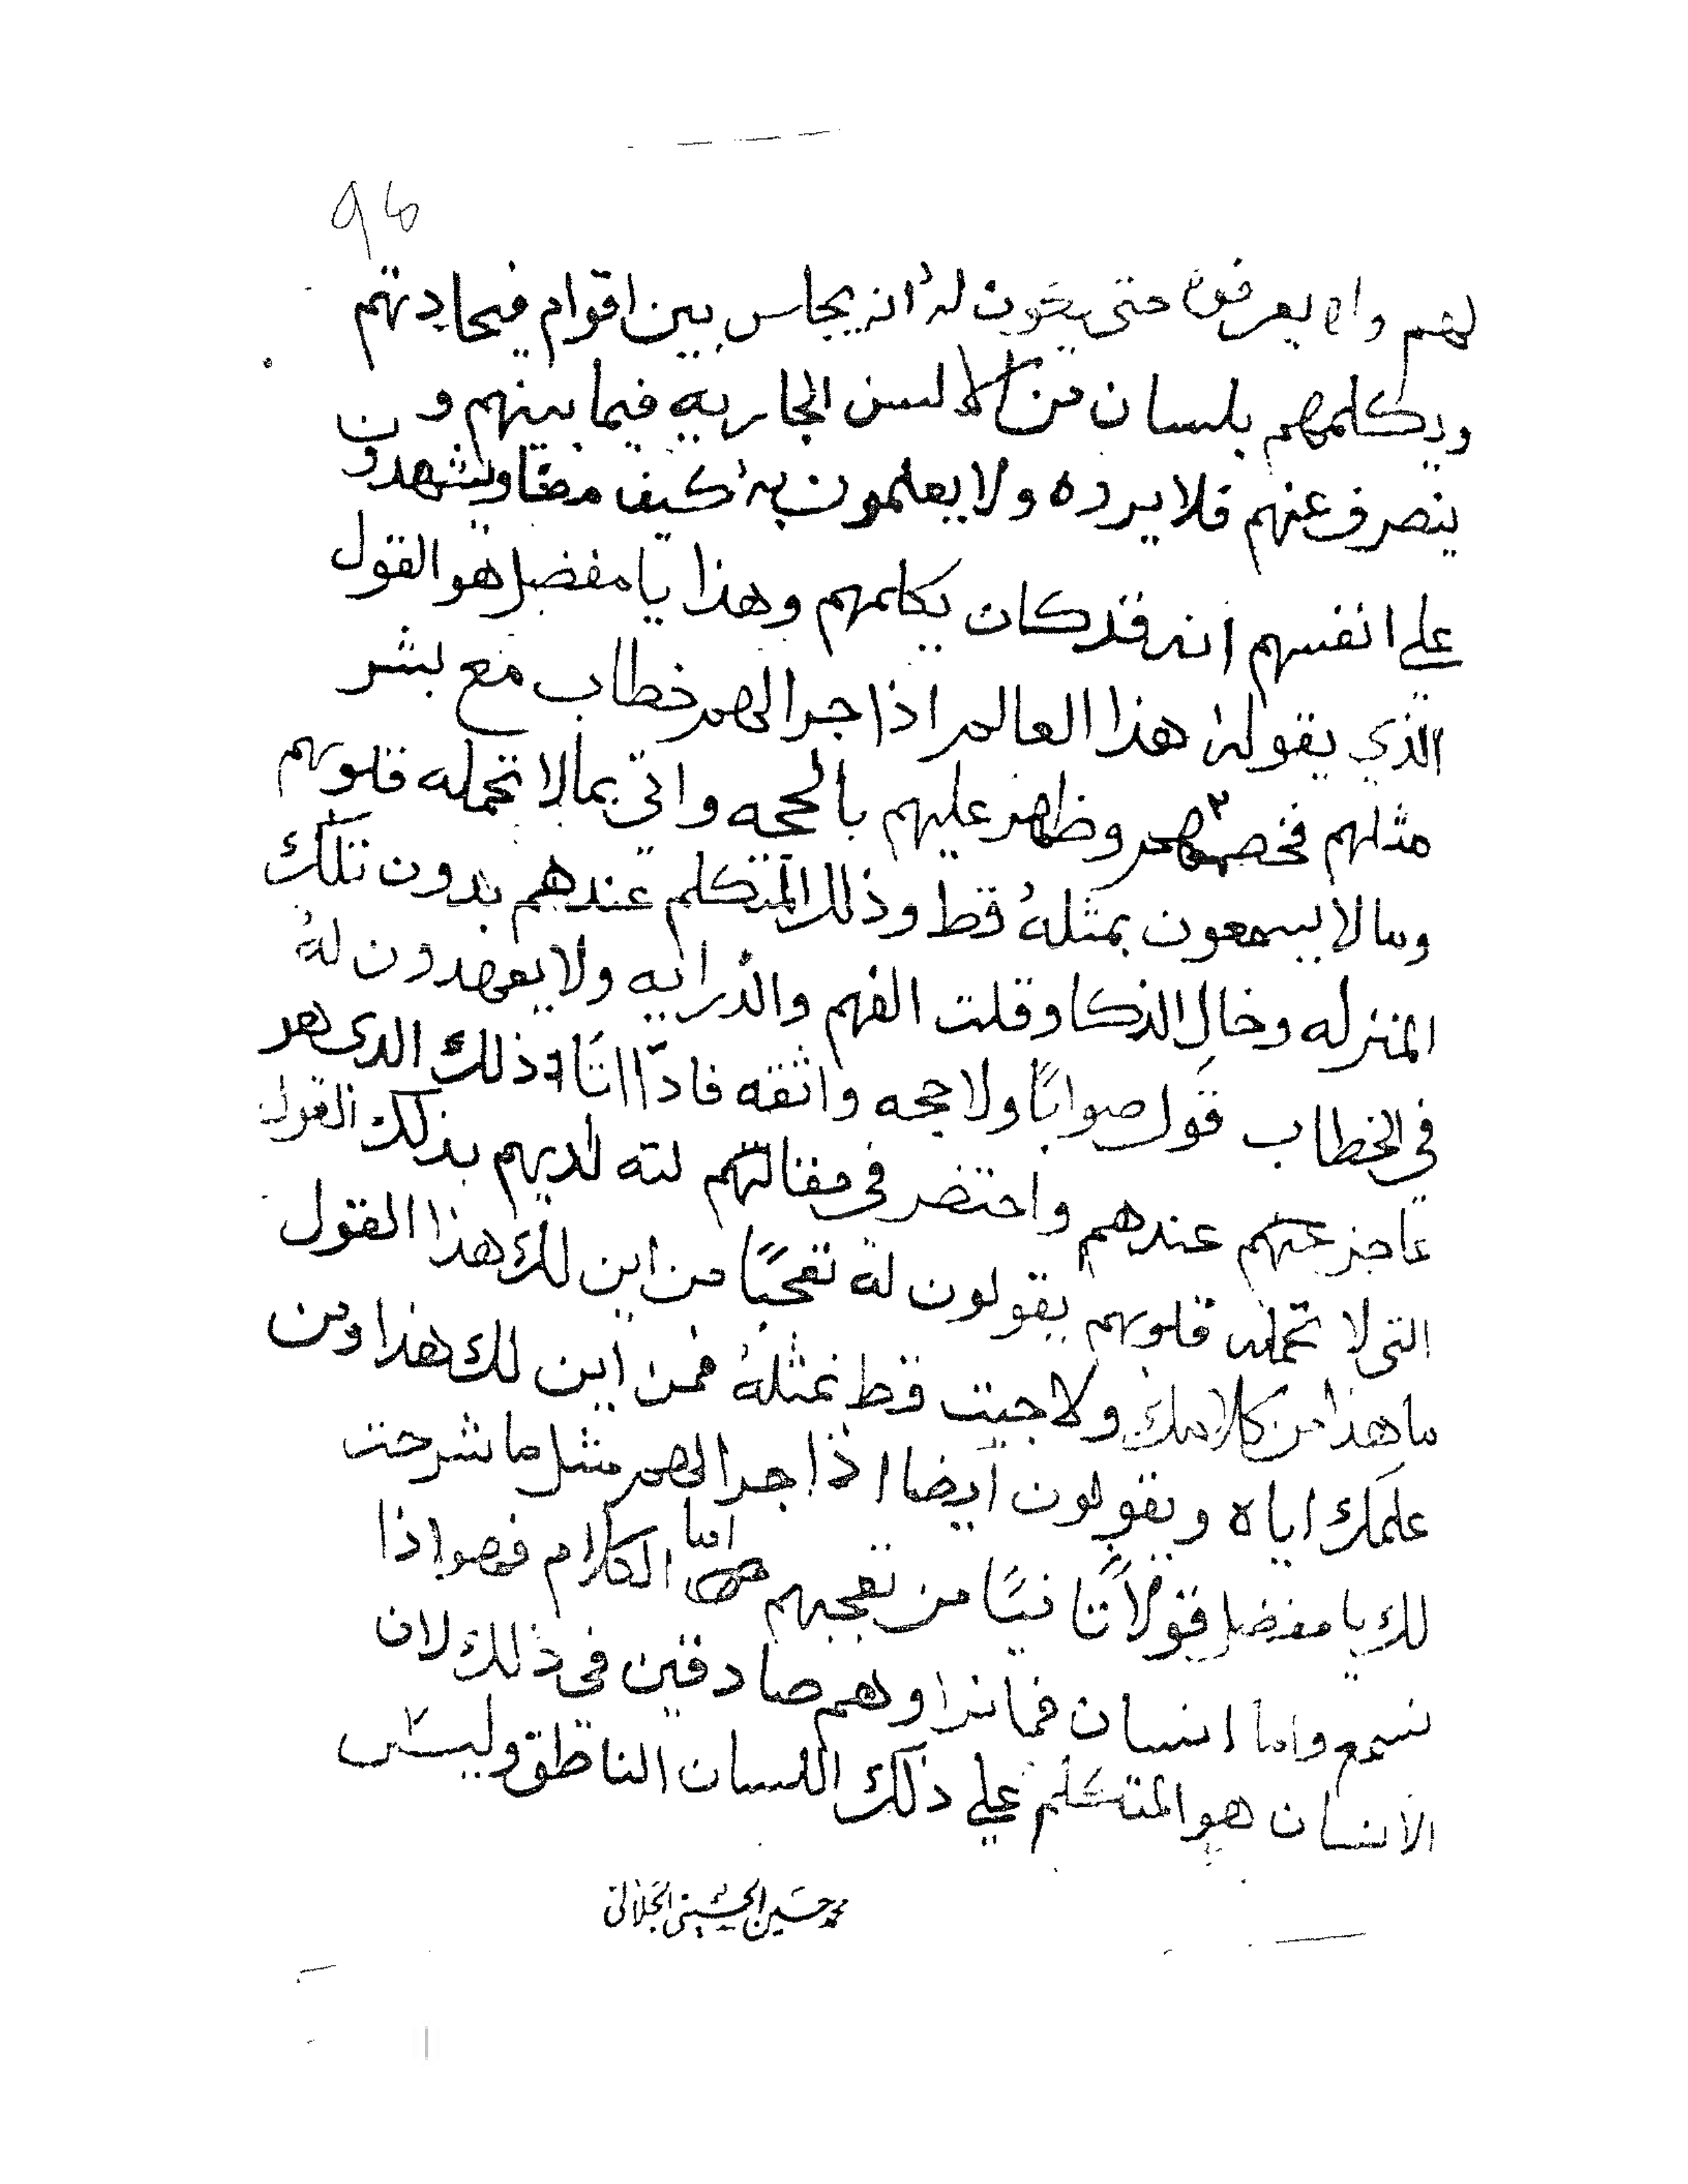 96
لهم ولا يعرفون حتى يكون له انه يجلس بين اقوام فيحادتهم
ويكلمهم بلسان من الالسن الجاريه فيما بينهم و
ينصرف عنهم فلا يرده ولا يعلمون به كيف مضا ويشهدون
علي انفسهم انه قد كان يكلمهم وهذا يا مفضل هو القول
الذي يقوله هذا العالم اذا جرا لهم خطاب مع بشر
مثلهم فخصمهم وظهر عليهم بالحجه واتي بما لا تحمله قلوبهم
وما لا يسمعون بمثله قط وذلك المتكلم عندهم بدون تلك
المنزله وخال الذكا وقلت الفهم والدرايه ولا يعهدون له
في الخطاب قول صوابًا ولا حجه واثقه فاذا اتا ذلك الدى هو
عاجز عنهم عندهم واحتضر في مقالتهم لته لديهم بذلك القول
التى لا تحمله قلوبهم يقولون له تعجبًا من اين لك هذا القول
ما هذا من كلامك ولا جيت قط بمثله فمن اين لك هذا ومن
علمك اياه ويقولون ايضا اذا جرا لهم مثل ما شرحت
لك يا مفضل قولاً ثانيًا من تعجبهم اما الكلام فهو اذا
نسمع واما انسان فما نرا وهم صادقين في ذلك لان
الانسان هو المتكلم علي ذلك اللسان الناطق وليس
محمد حسين الحسيني الجلالي